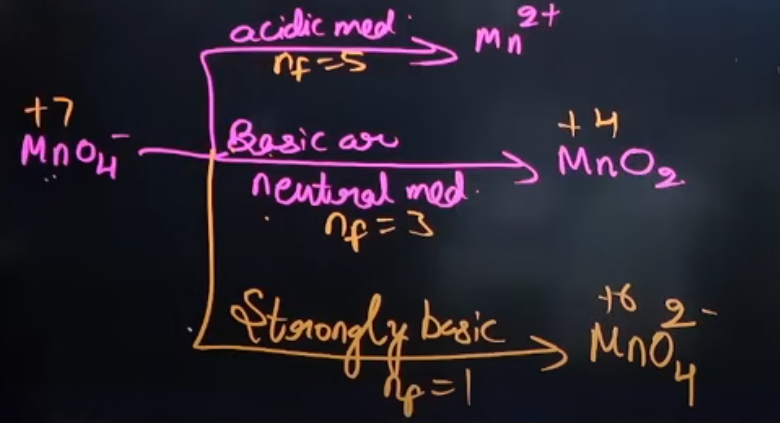 acidic med.
nf = 5
Mn²⁺
+7
MnO₄⁻
Basic or
neutral med.
nf = 3
+4
MnO₂
Strongly basic
nf = 1
+6
MnO₄²⁻